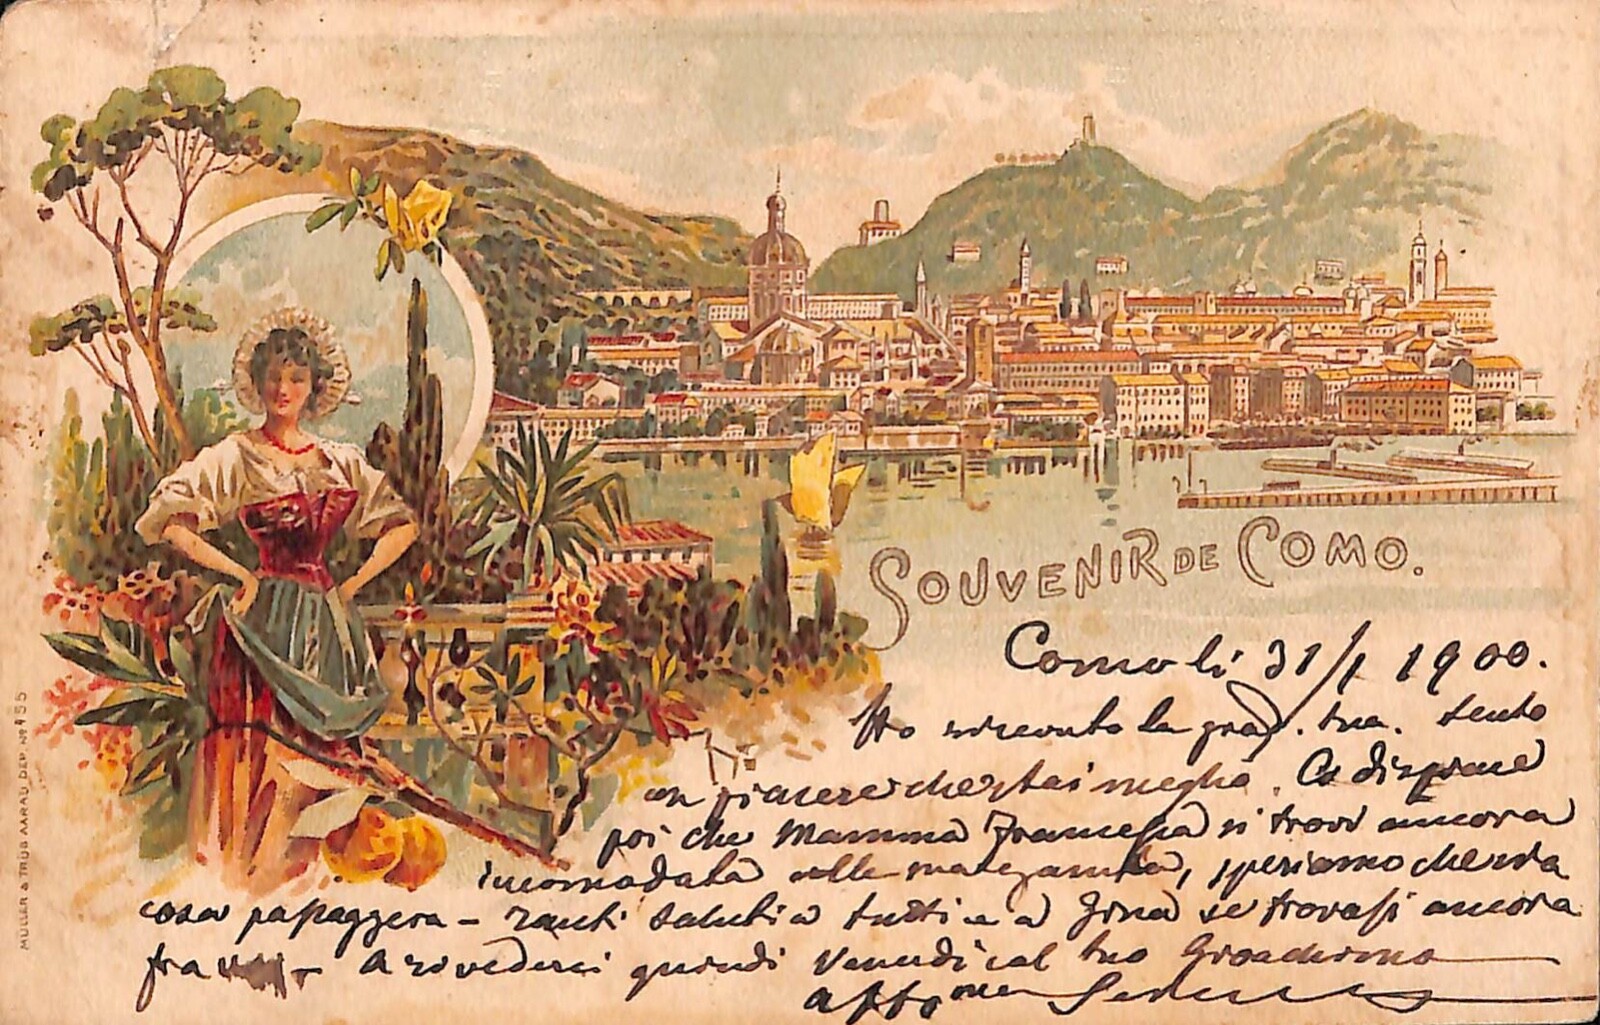 SOUVENIR DE COMO.
Como li 31/1 1900.
Ho ricevuto la grad. tua. Sento
un piacere che stai meglio. Ci dispiace
poi che Mamma Francesca si trovi ancora
incomodata alle, speriamo che sia
cosa passaggera - Tanti saluti a tutti e a Gina se trovasi ancora
fra - A rivederci quindi Venerdi col tuo
affmo
MÜLLER & TRÜB AARAU DEP. No 455